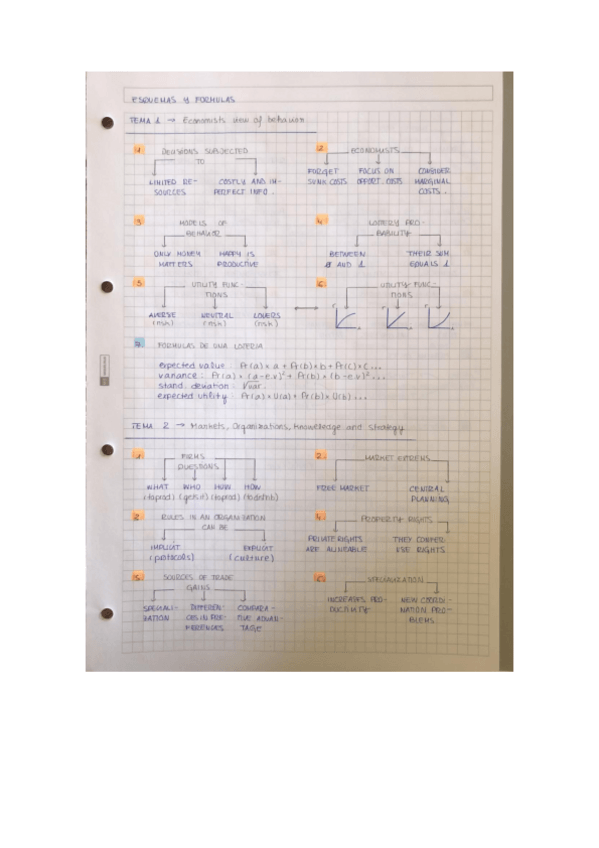 ESQUEMAS Y FORMULAS
TEMA 1 → Economists view of behavior
1. DECISIONS SUBJECTED
TO
LIMITED RE-
SOURCES
COSTLY AND IM-
PERFECT INFO.
2. ECONOMISTS
FORGET
SUNK COSTS
FOCUS ON
OPPORT. COSTS
CONSIDER
MARGINAL
COSTS.
3 MODELS OF
BEHAVIOR
ONLY MONEY
MATTERS
HAPPY IS
PRODUCTIVE
4. LOTTERY PRO-
BABILITY
BETWEEN
0 AND 1
THEIR SUM
EQUALS 1
5 UTILITY FUNC-
TIONS
AVERSE
(risk)
NEUTRAL
(risk)
LOVERS
(risk)
6. UTILITY FUNC-
TIONS
7. FORMULAS DE UNA LOTERIA
expected value: Pr(a)×a + Pr(b)×b + Pr(c)×c...
variance: Pr(a)×(a-e.v)² + Pr(b)×(b-e.v)²...
stand. deviation: √var.
expected utility: Pr(a)×U(a) + Pr(b)×U(b)...
TEMA 2 → Markets, Organizations, knowledge and strategy
1 FIRMS
QUESTIONS
WHAT
(toprod)
WHO
(gets it)
HOW
(toprod)
HOW
2. MARKET EXTREMS
FREE MARKET
CENTRAL
PLANNING
RULES IN AN ORGANISATION
CAN BE
IMPLICIT
(protocols)
EXPLICIT
(culture)
4. PROPERTY RIGHTS
PRIVATE RIGHTS
ARE ALINEABLE
THEY CONFER
USE RIGHTS
5. SOURCES OF TRADE
GAINS
SPECIALI-
ZATION
DIFFEREN-
CES IN PRE-
FERENCES
COMPARA-
TIVE ADVAN-
TAGE
6. SPECIALIZATION
INCREASES PRO-
DUCTIVITY
NEW COORDI-
NATION PRO-
BLEMS